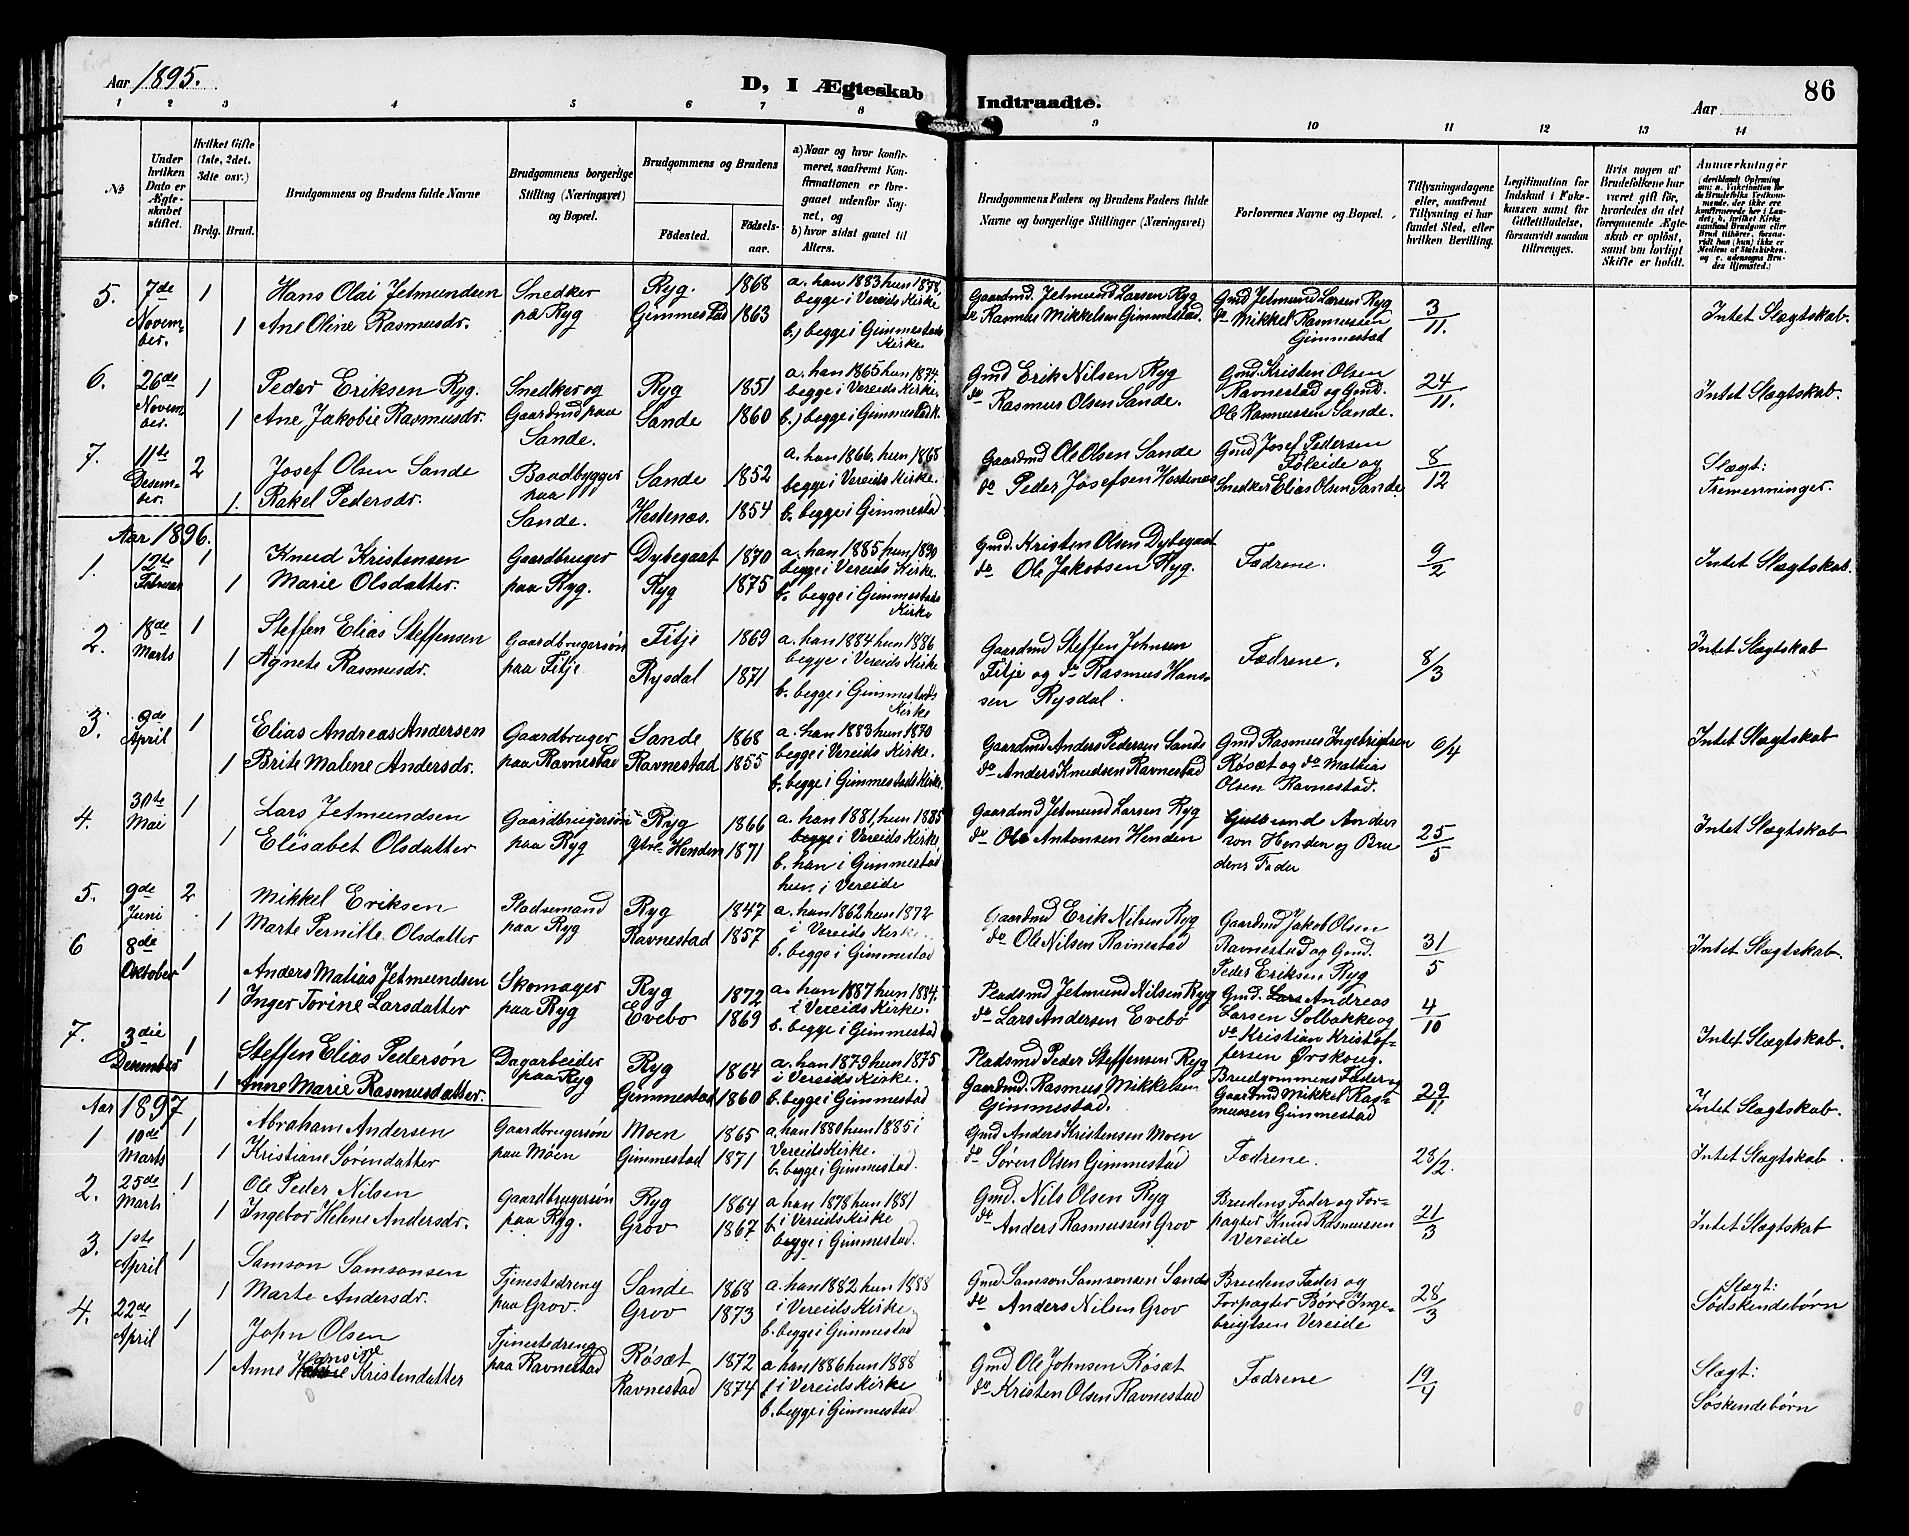 Aar 1895.
D, I Ægteskab Indtraadte.
Aar
86
1 2 3 4 5 6 7 8 9 10 11 12 13 14
No
Under hvilken Dato er Ægteskabet stiftet.
Hvilket Gifte (1ste, 2det, 3die osv.)
Brdg. Brud.
Brudgommens og Brudens fulde Navne
Brudgommens borgerlige Stilling (Næringsvei) og Bopæl.
Brudgommens og Brudens
Fødested. Fødselsaar.
a) Naar og hvor konfirmeret, saafremt Konfirmationen er foregaaet udenfor Sognet, og
b) hvor sidst gaaet til Alters.
Brudgommens Faders og Brudens Faders fulde Navne og borgerlige Stillinger (Næringsvei)
Forlovernes Navne og Bopæl.
Tillysningsdagene eller, saafremt Tillysning ei har fundet Sted, efter hvilken Bevilling.
Legitimation for Indskud i Enkekassen samt for Giftetilladelse, forsaavidt saadan tiltrænges.
Hvis nogen af Brudefolkene har været gift før, hvorledes da det foregaaende Ægteskab er opløst, samt om lovligt Skifte er holdt.
Anmærkninger
5. 7de November. 1 Hans Olai Jetmundsen Snedker paa Ryg Ryg. 1868 a. han 1883 hun 1878, begge i Vereids Kirke
1 Ane Oline Rasmusdr. Gimmestad 1863 b.) begge i Gimmestads Kirke.
Gaardmd. Jetmund Larsen Ryg
do Rasmus Mikkelsen Gimmestad.
Gmd Jetmund Larsen Ryg
do Mikkel Rasmussen Gimmestad
3/11. Intet Slægtskab.
6. 26de November. 1 Peder Eriksen Ryg. Snedker og Gaardmd paa Sande. Ryg 1851 a. han 1865 hun 1874. begge i Vereids Kirke.
1 Ane Jakobie Rasmusdr. Sande 1860 b.) begge i Gimmestad K.
Gmd Erik Nilsen Ryg
do Rasmus Olsen Sande.
Gmd. Kristen Olsen Ravnestad og Gmd. Ole Rasmussen Sande.
24/11. Intet Slægtskab.
7. 11te Desember. 2 Josef Olsen Sande Baadbygger paa Sande. Sande 1852 a. han 1866, hun 1865 begge i Vereids Kirke.
1. Rakel Pedersdr. Hestenæs. 1854 b. begge i Gimmestad
Gaardmd Ole Olsen Sande
do Peder Josefsen Hestenæs
Gmd Josef Pedersen Føleide og
Snedker Elias Olsen Sande.
8/12 Slægt: Tremenninger.
Aar 1896.
1. 12te Februar 1 Knud Kristensen Gaardbruger paa Ryg. Dybegaat 1870 a. han 1885, hun, 1890 begge i Vereids Kirke.
1 Marie Olsdatter. Ryg 1875 b. begge i Gimmestads Kirke
Gmd. Kristen Olsen Dybegaat
do Ole Jakobsen Ryg.
Fædrene.
9/2 Intet Slægtskab.
2. 18de Marts 1 Steffen Elias Steffensen Gaardbrugersøn paa Fitje. Fitje 1869 a. han 1884 hun 1886 begge i Vereids Kirke
1 Agnete Rasmusdr. Rysdal 1871 b. begge i Gimmestads Kirke
Gaardmd Steffen Johnsen Fitje og do Rasmus Hanssen Rysdal.
Fædrene.
8/3 Intet Slægtskab
3. 9de April 1 Elias Andreas Andersen Gaardbruger paa Ravnestad Sande 1868 a. han 1883 hun 1870 begge i Vereids Kirke.
1 Brite Malene Andersdr. Ravnestad 1855 b. begge i Gimmestads Kirke.
Gaardmd Anders Pedersen Sande
do Anders Knudsen Ravnestad
Gmd Rasmus Ingebrigtsen Røsæt og do Mathias Olsen Ravnestad.
6/4 Intet Slægtskab
4. 30te Mai 1 Lars Jetmundsen Gaardbrugersøn paa Ryg Ryg 1866 a. han 1881, hun 1885 begge i Vereids Kirke,
1 Elisabet Olsdatter Ytre Henden 1871 b. han i Gimmestad hun i Vereide
Gaardmd Jetmund Larsen Ryg
do Ole Antonsen Henden
Anders son Henden og Brudens Fader
25/5 Intet Slægtskab
5. 9de Juni 2 Mikkel Eriksen Pladsemand paa Ryg Ryg 1847 a. han 1862 hun 1872 i Vereids Kirke.
1 Marte Pernille Olsdatter Ravnestad 1857 b. begge i Gimmestad
Gaardmd Erik Nilsen Ryg
do Ole Nilsen Ravnestad
Gaardmd Jakob Olsen Ravnestad og Gmd. Peder Eriksen Ryg
31/5 Intet Slægtskab.
6 8de Oktober 1 Anders Matias Jetmundsen Skomager paa Ryg Ryg 1872 a. han 1887 hun 1884. i Vereids Kirke.
1 Inger Torine Larsdatter Evebø 1869 b. begge i Gimmestad
Pladsmd Jetmund Nilsen Ryg
do Lars Andersen Evebø
Gmd. Lars Andreas Larsen Solbakke og
do Kristian Kristoffersen Ørskoug.
4/10 Intet Slægtskab.
7. 3die Desember 1 Steffen Elias Pedersøn Dagarbeider paa Ryg Ryg 1864 a. han 1879 hun 1875 i Vereids Kirke.
1 Anne Marie Rasmusdatter. Gimmestad 1860 b. begge i Gimmestad
Pladsmd Peder Steffensen Ryg
Gaardmd. Rasmus Mikkelsen Gimmestad.
Brudgommens Fader og Gaardmd Mikkel Rasmussen Gimmestad
29/11 Intet Slægtskab.
Aar 1897
1 10de Marts 1 Abraham Andersen Gaardbrugersøn paa Moen Moen 1865 a. han 1880 hun 1885 i Vereids Kirke.
1 Kristiane Sørendatter Gimmestad 1871 b. begge i Gimmestad.
Gmd Anders Kristensen Moen
do Søren Olsen Gimmestad
Fædrene.
28/2. Intet Slægtskab.
2. 25de Marts 1 Ole Peder Nilsen Gaardbrugersøn paa Ryg. Ryg 1864 a. han 1878 hun 1881 i Vereids Kirke
1 Ingebor Helene Andersdr. Grov 1867 b. begge i Gimmestad.
Gmd. Nils Olsen Ryg
do Anders Rasmussen Grov
Brudens Fader og Forpagter Knud Rasmussen Vereide
21/3 Intet Slægtskab
3. 1ste April 1 Samson Samsonsen Tjenestedreng paa Grov. Sande 1868 a. han 1882 hun 1888 i Vereids Kirke,
1 Marte Andersdr. Grov 1873 b. begge i Gimmestad
Gmd Samson Samsonsen Sande
do Anders Nilsen Grov
Brudens Fader og Forpagter Børe Ingebrigtsen Vereide
28/3 Slægt: Sødskendebørn
4. 22de April 1 John Olsen Tjenestedreng paa Ravnestad Røsæt 1872 a. han 1886 hun 1888 i Vereids Kirke
1 Anne Hansine Kristendatter Ravnestad 1874 b. begge i Gimmestad
Gmd Ole Johnsen Røsæt
do Kristen Olsen Ravnestad
Fædrene
19/4 Slægt: Søskendebørn